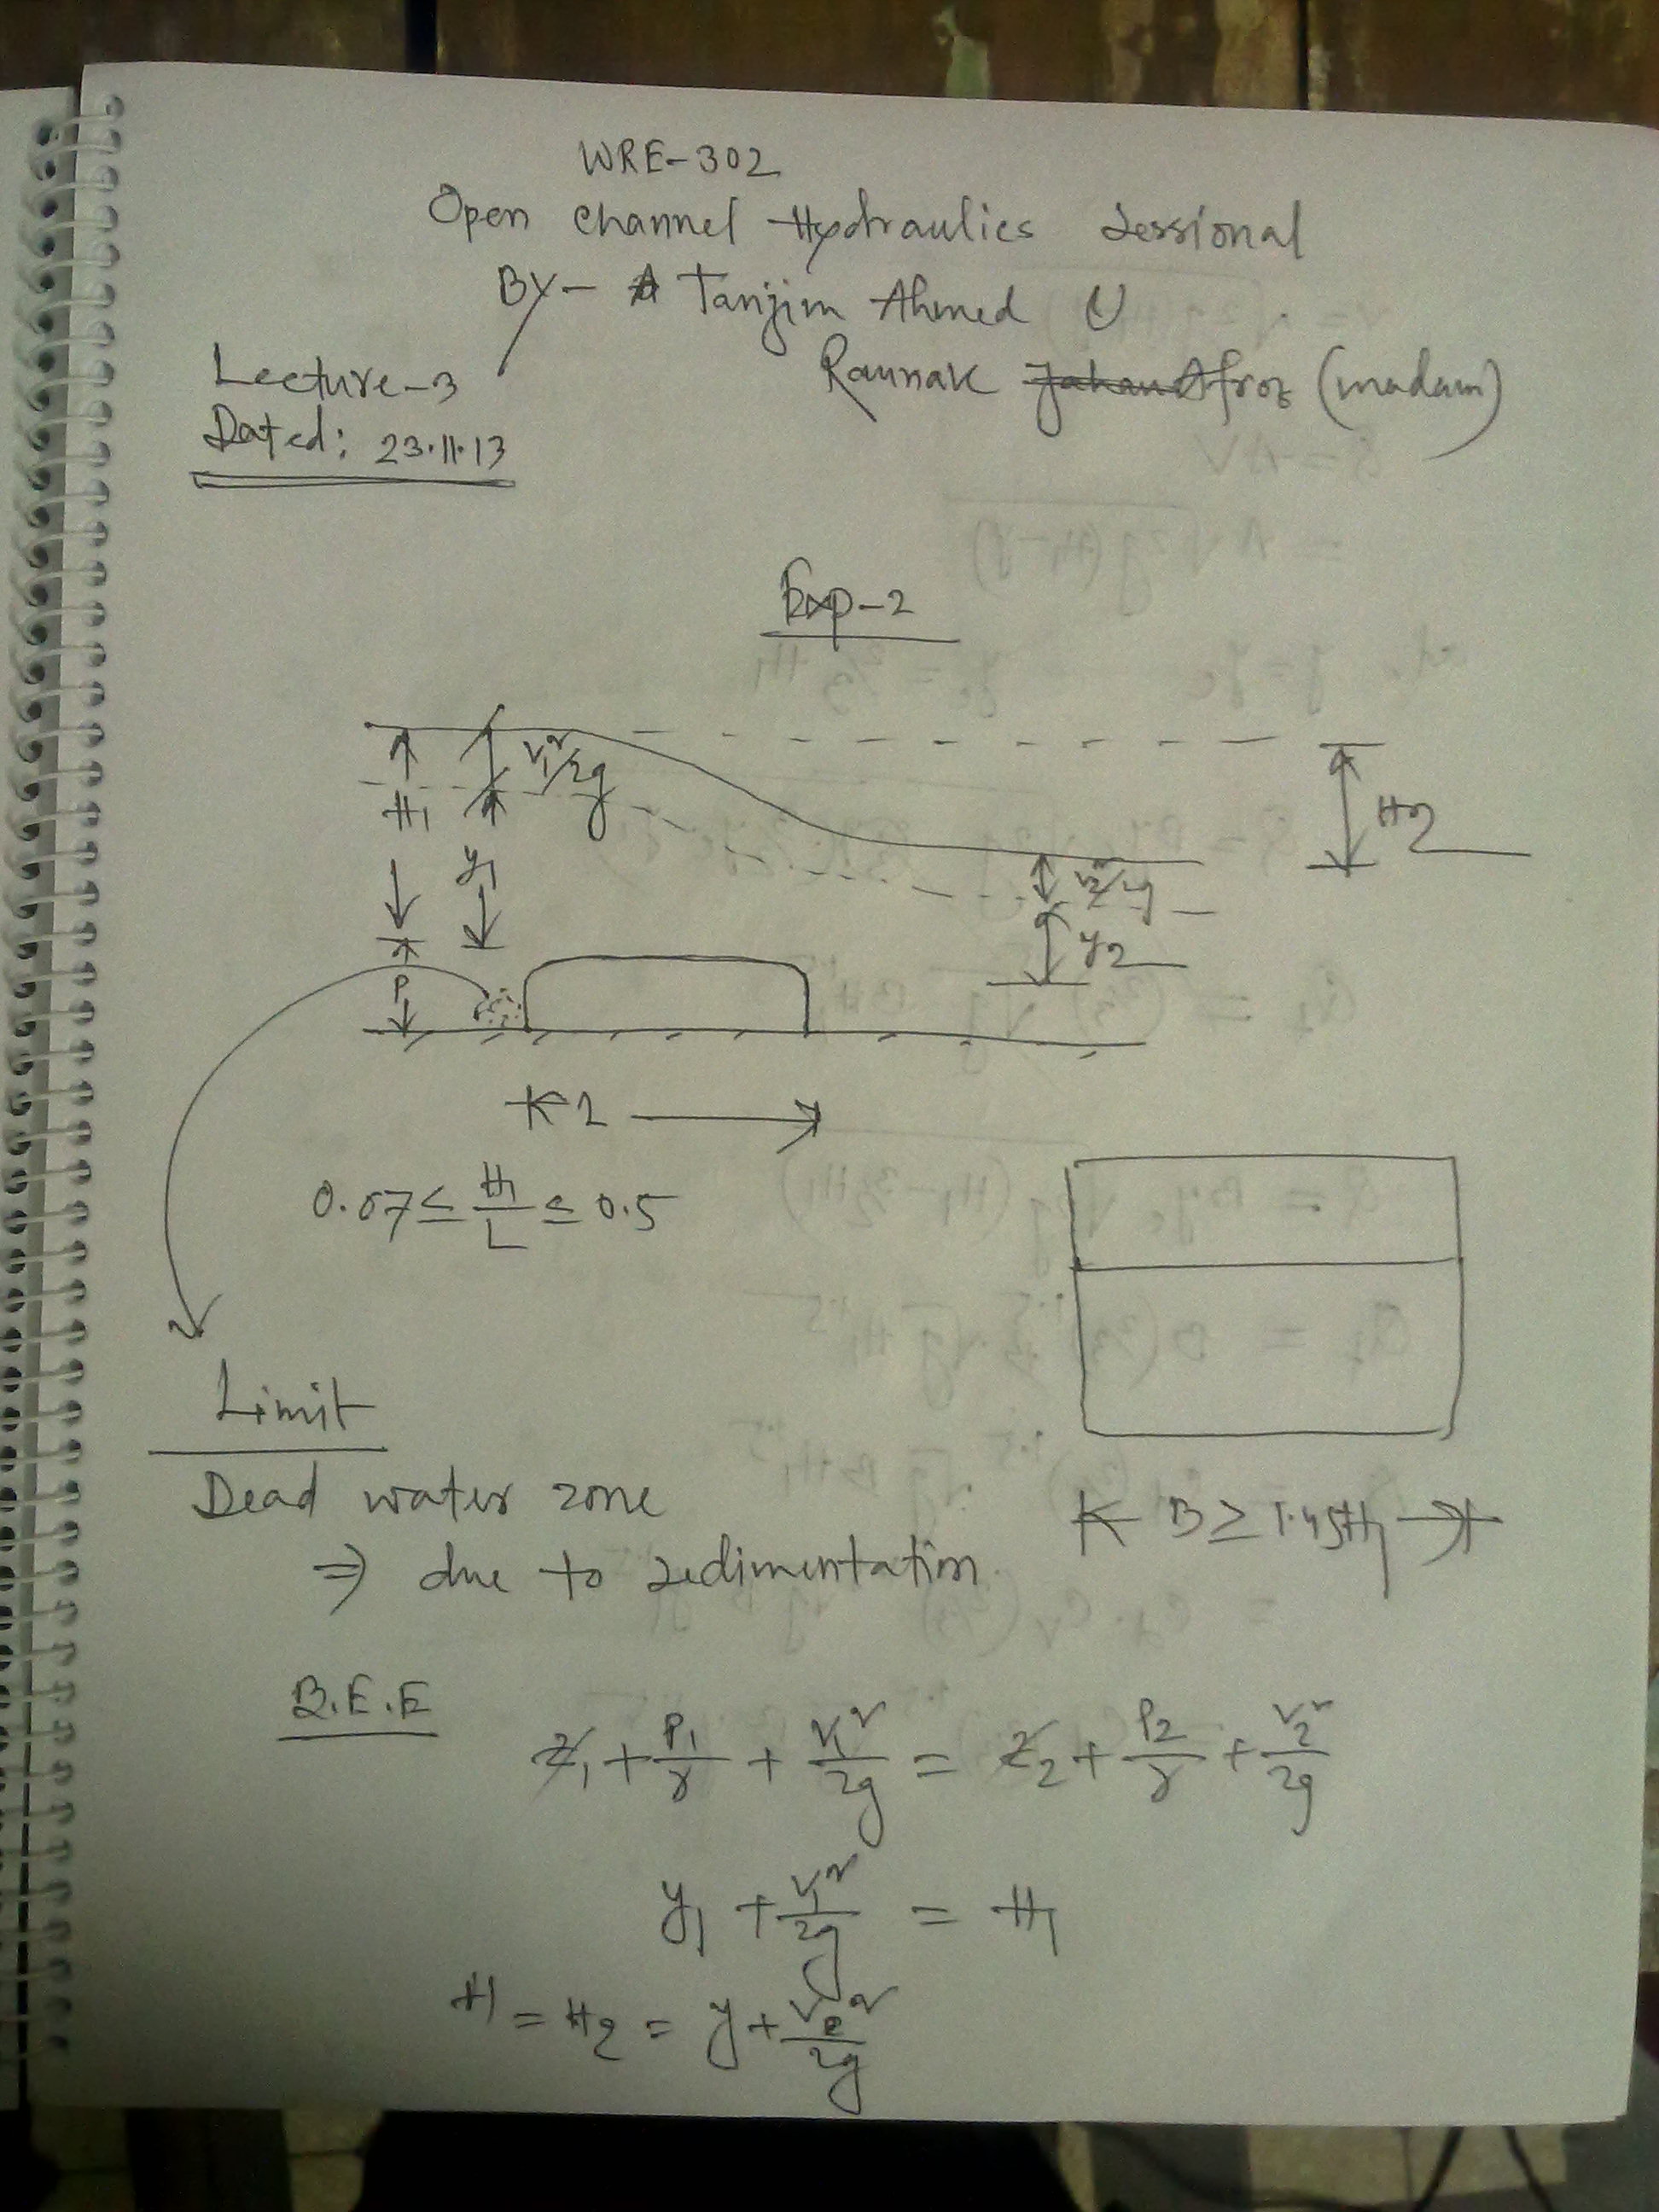 WRE-302
Open Channel Hydraulics Sessional
By- Tanjim Ahmed
Raunak Jahan Afroz (madam)
Lecture-3
Dated: 23.11.13
Exp-2
V₁²/2g
H₁
H2
y₁
V₂²/2g
y2
P
L
0.07 ≤ H₁/L ≤ 0.5
Limit
Dead water zone
⇒ due to sedimentation
B ≥ 1.45H₁
B.E.E
Z₁ + P₁/γ + V₁²/2g = Z₂ + P₂/γ + V₂²/2g
y₁ + V₁²/2g = H₁
H = H₂ = y + V₂²/2g